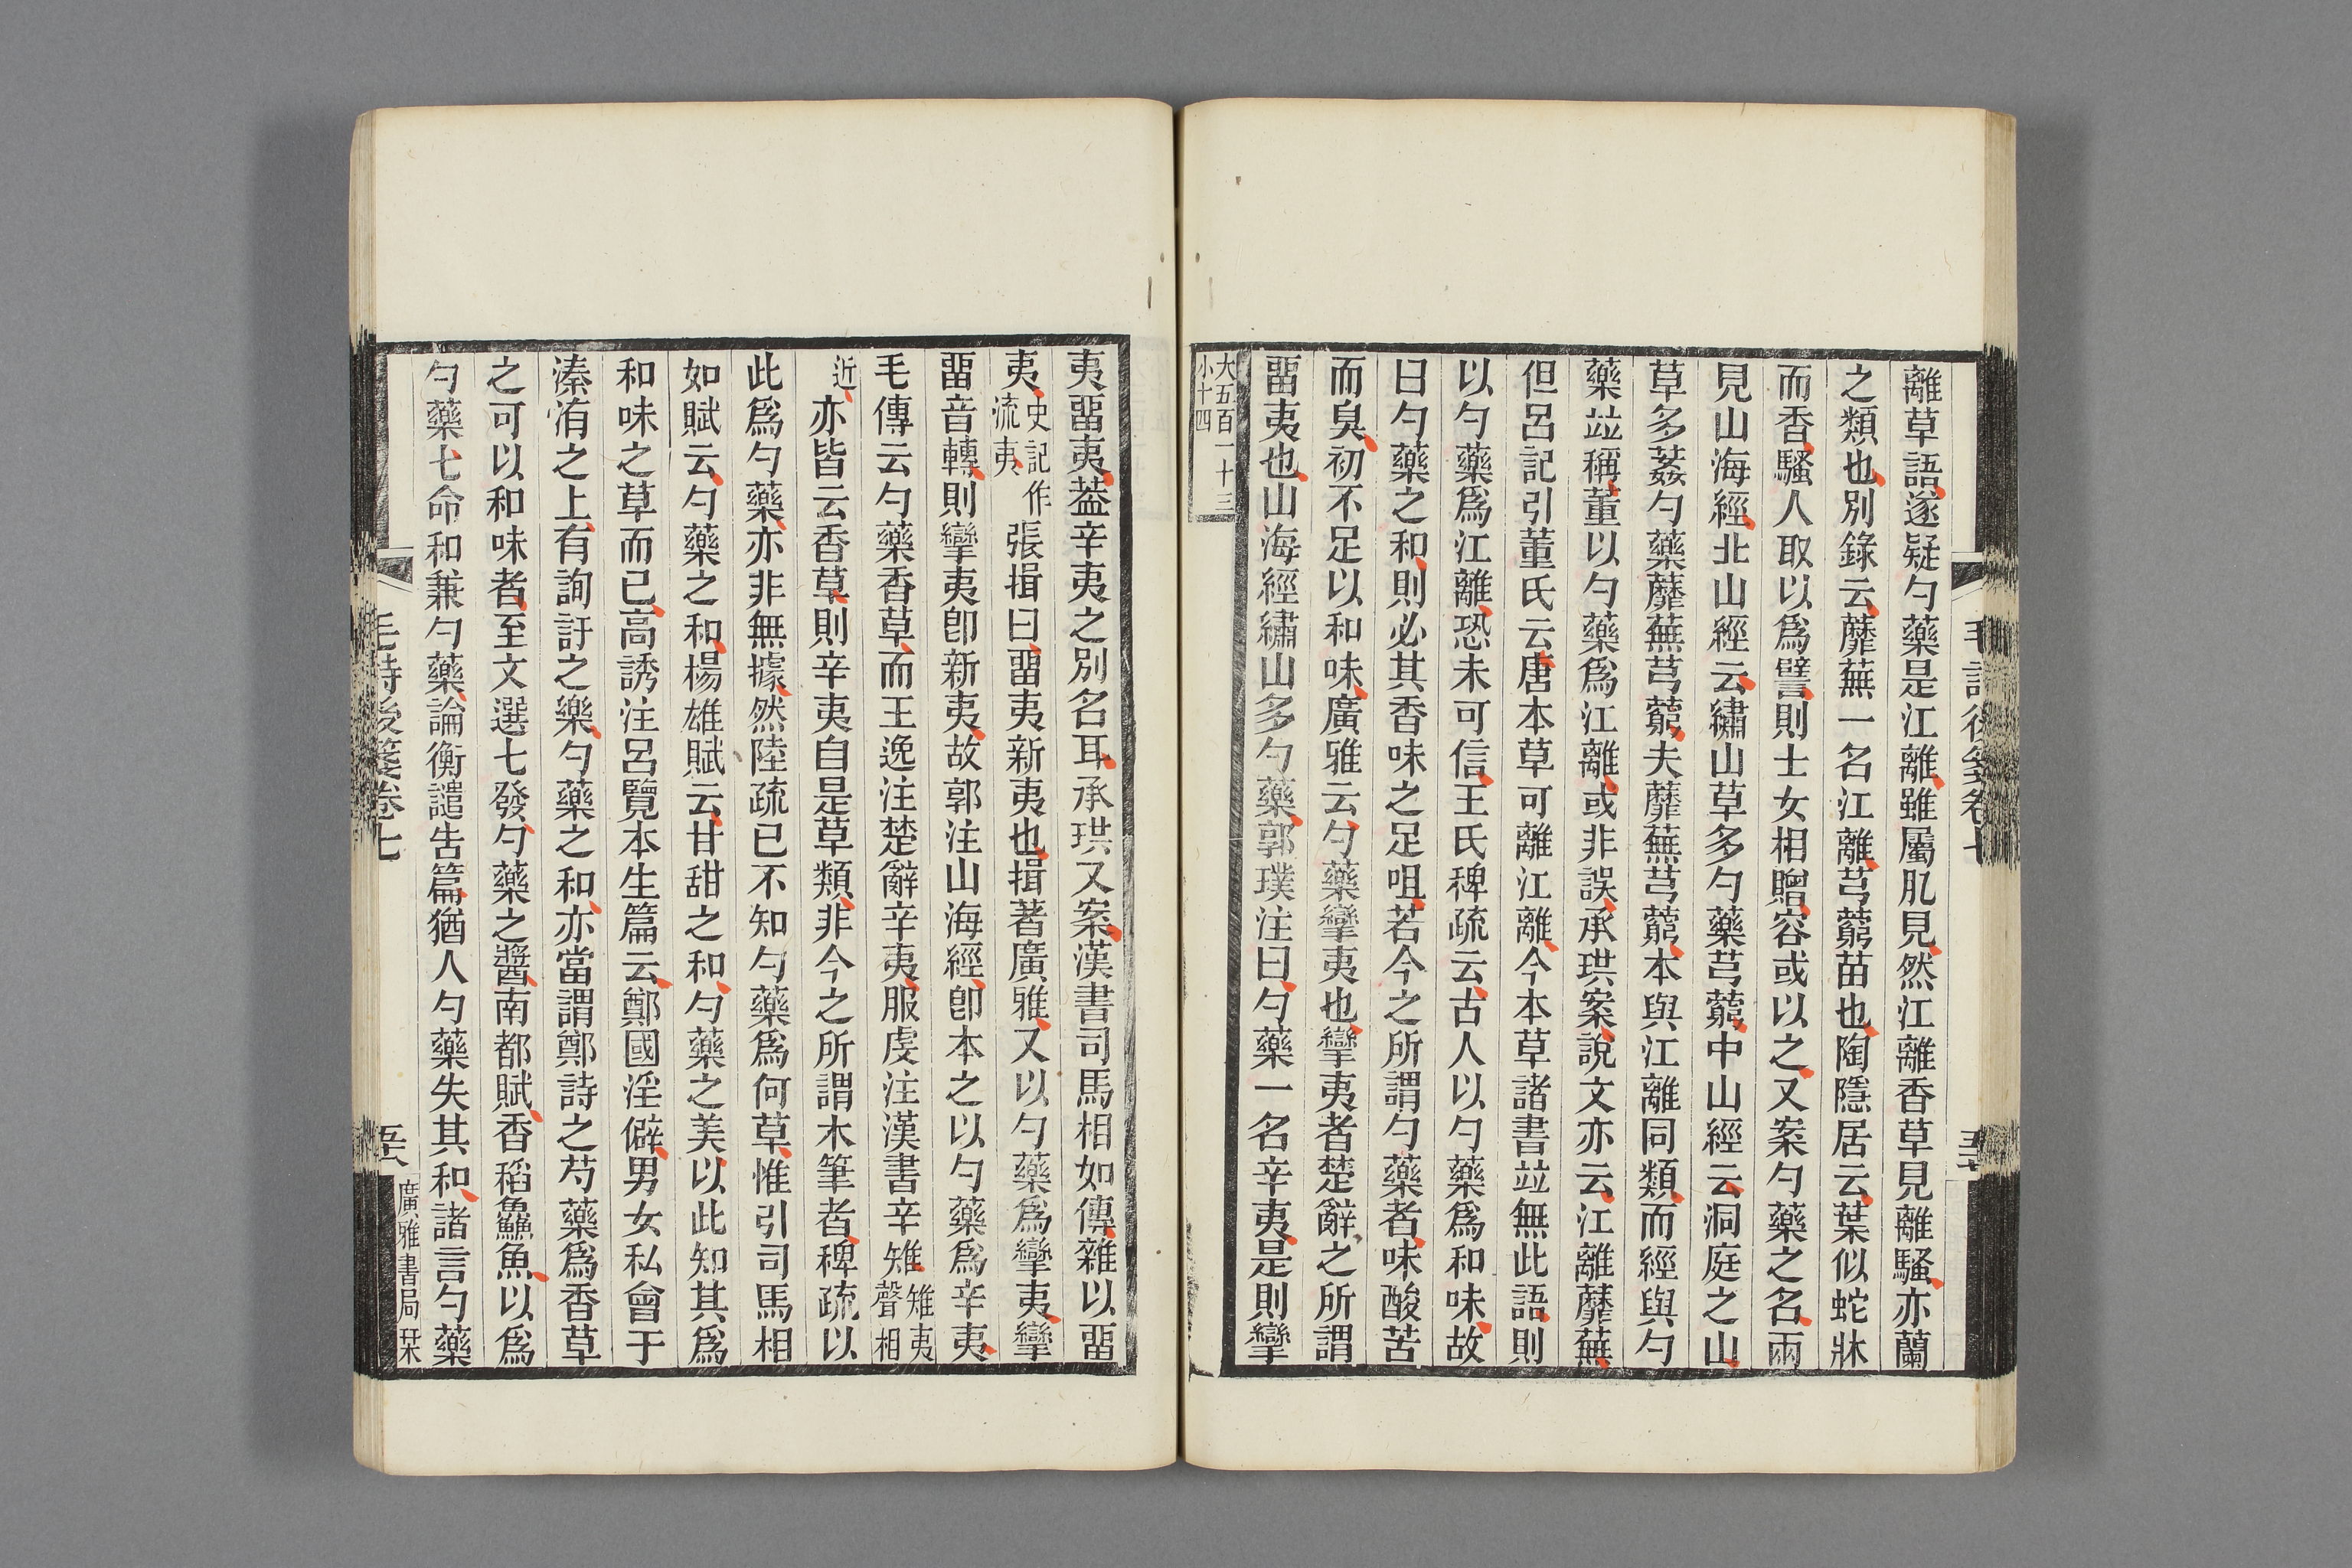 離草語遂疑勺藥是江離雖屬肊見然江離香草見離騷亦蘭
之類也別錄云蘼蕪一名江離芎藭苗也陶隱居云葉似蛇牀
而香騷人取以爲譬則士女相贈容或以之又案勺藥之名兩
見山海經北山經云繡山草多勺藥芎藭中山經云洞庭之山
草多葌勺藥蘼蕪芎藭夫蘼蕪芎藭本與江離同類而經與勺
藥竝稱董以勺藥爲江離或非誤承珙案說文亦云江離蘼蕪
但呂記引董氏云唐本草可離江離今本草諸書竝無此語則
以勺藥爲江離恐未可信王氏稗疏云古人以勺藥爲和味故
曰勺藥之和則必其香味之足咀若今之所謂勺藥者味酸苦
而臭初不足以和味廣雅云勺藥攣夷也攣夷者楚辭之所謂
畱夷也山海經繡山多勺藥郭璞注曰勺藥一名辛夷是則攣
大五百一十三
小十四
毛詩後箋卷七
夷畱夷葢辛夷之別名耳承珙又案漢書司馬相如傳雜以畱
夷史記作流夷張揖曰畱夷新夷也揖著廣雅又以勺藥爲攣夷攣
畱音轉則攣夷卽新夷故郭注山海經卽本之以勺藥爲辛夷
毛傳云勺藥香草而王逸注楚辭辛夷服虔注漢書辛雉雉夷聲相
近亦皆云香草則辛夷自是草類非今之所謂木筆者稗疏以
此爲勺藥亦非無據然陸疏已不知勺藥爲何草惟引司馬相
如賦云勺藥之和楊雄賦云甘甜之和勺藥之美以此知其爲
和味之草而已高誘注呂覽本生篇云鄭國淫僻男女私會于
溱洧之上有詢訏之樂勺藥之和亦當謂鄭詩之芍藥爲香草
之可以和味者至文選七發勺藥之醬南都賦香稻鱻魚以爲
勺藥七命和兼勺藥論衡譴告篇猶人勺藥失其和諸言勺藥
毛詩後箋卷七
五八
廣雅書局栞